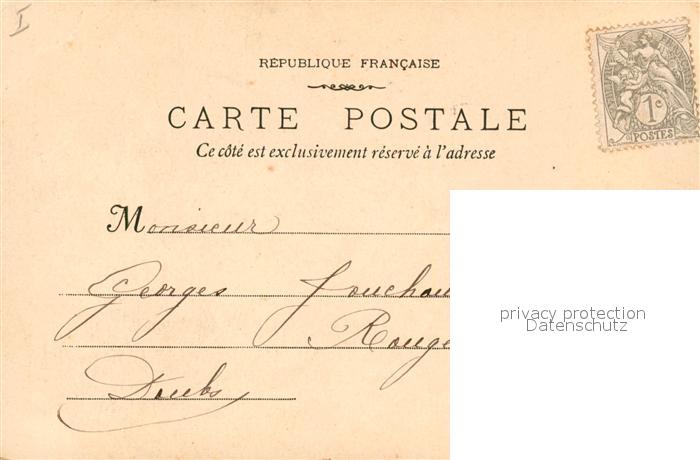 I
RÉPUBLIQUE FRANÇAISE
1c
POSTES
CARTE POSTALE
Ce côté est exclusivement réservé à l'adresse
Monsieur
Georges
Rouge
privacy protection
Datenschutz
Doubs